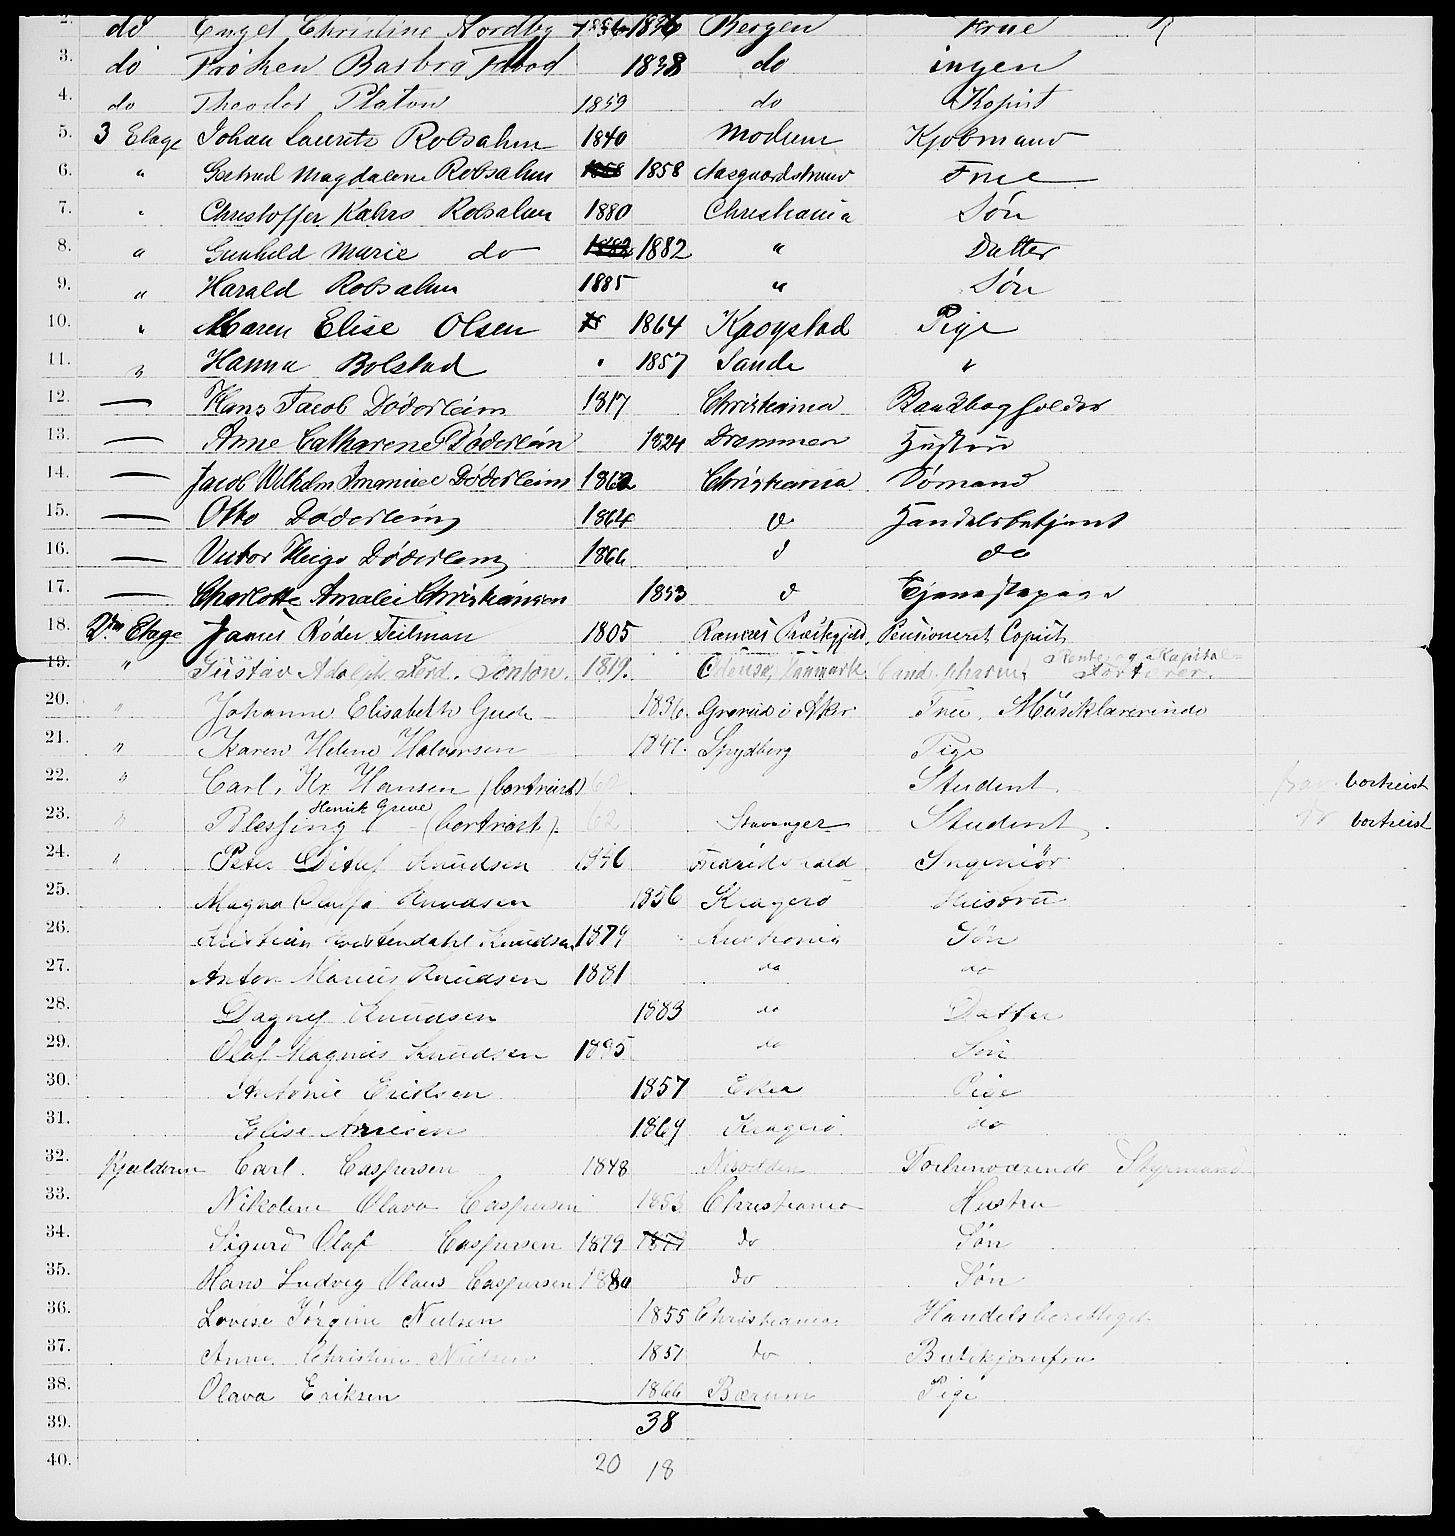 2. do Engel Christine Nordby 1836 Bergen Frue
3. do Frøken Barbra Flood 1838 do ingen
4. do Theodor Platou 1859 do Kopist
5. 3 Etage Johan Lauritz Robsahm 1840 Modum Kjøbmand
6. " Gertrud Magdalene Robsahm 1858 Frue
7. " Christoffer Kahrs Robsahm 1880 Christiania Søn
8. " Gunhild Marie do 1882 1882 " Datter
9. " Harald Robsahm 1885 " Søn
10. " Maren Elise Olsen 1864 Krogstad Pige
11. " Hanna Bolstad " 1857 Sande "
12. — Hans Jacob Döderlein 1817 Christiania
13. — Anne Catharene Döderlein 1824 Drammen Hustru
14. — Jacob Wilhelm Imanuel Döderlein 1862 Christiania
15. — Otto Döderlein 1864 d Handelsbetjent
16. — Victor Hugo Döderlein 1866 d do
17. — Charlotte Amalei Christiansen 1853 d Tjenestepige
18. 2den Etage James Røder Teilman 1805 Præstegjeld Pensioneret Copist
19. " Gustav Adolph Ferd. 1819. Odense, Danmark Cand. pharm, Rente og Kapital-
20. " Johanne Elisabeth Gude 1836. i Aker Frue, Musiklærerinde
21. " Karen Helene Halvorsen Spydberg Pige
22. " Carl. Kr. Hansen (bortreist) 62 Student bortreist
23. " Blessing Henrik Greve (bortreist). 62 Stavanger Student. bortreist
24. " Peter Ditlef Knudsen 1846 Ingeniør
25. Magna Knudsen 1856 Kragerø Husfru
26. Kristian Knudsen 1879 Søn
27. Anton Marius Knudsen 1881 do do
28. Dagny Knudsen 1883 do Datter
29. Olaf Magnus Knudsen do Søn
30. Antonie Eriksen 1857 Eker Pige
31. Elise 1869 Kragerø do
32. Kjælderen Carl. Caspersen 1848 Nesodden Forhenværende Styrmand
33. Nikoline Olava Caspersen 1853 Christiania Hustru
34. Sigurd Olaf Caspersen 1879 1879 do Søn
35. Hans Ludvig Olaus Caspersen 1880 do Søn
36. Lovise Jørgine Nielsen 1855 Christiania. Handelsberettiget
37. Anne Christine Nielsen 1851 do Butikjomfru
38. Olava Eriksen 1866 Bærum Pige
39. 38
40. 20 18